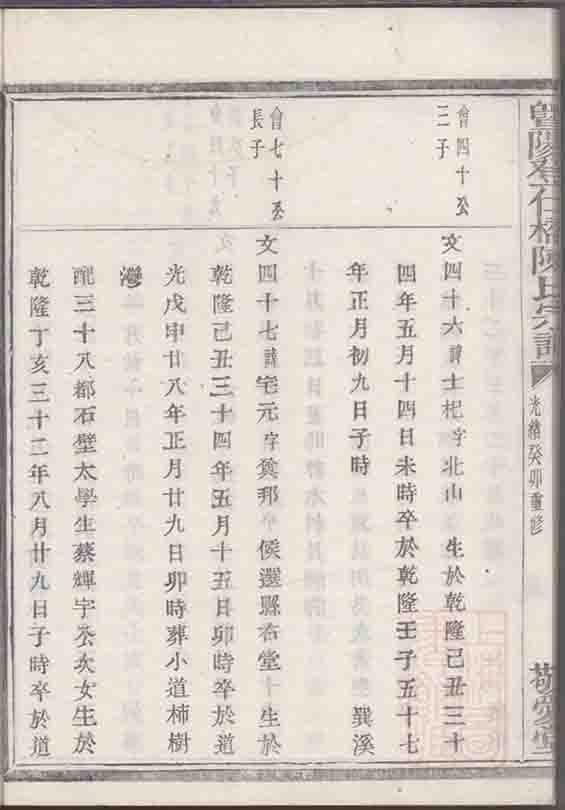 暨陽
仁橋陳氏宗譜
光緒癸卯重修
會四十公
三子
文四十六諱士杞字北山生於乾隆己丑三十
四年五月十四日未時卒於乾隆壬子五十七
年正月初九日子時
巽溪
會七十公
長子
文四十七諱宅元字奠邦
候選縣右堂
生於
乾隆己丑三十四年五月十五日卯時卒於道
光戊申廿八年正月廿九日卯時葬小道柿樹
灣
配三十八都石壁太學生蔡輝宇公次女生於
乾隆丁亥三十二年八月廿九日子時卒於道